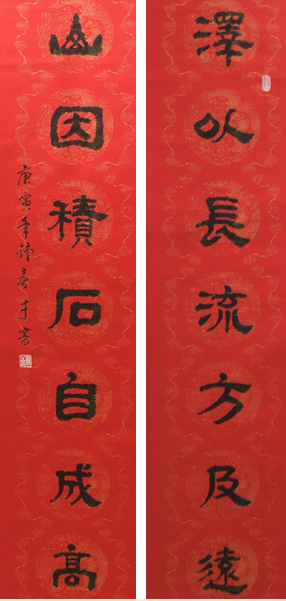 澤以長流方及遠
山因積石自成高
庚寅年鍾春才書